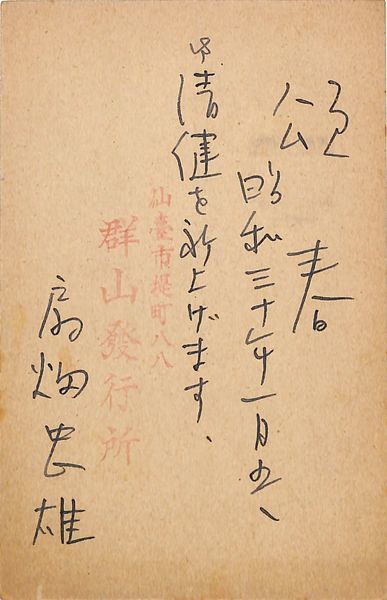 頌春
昭和三十年一月五、
御清健を祈上げます、
仙臺市堤町八八
群山發行所
扇畑忠雄